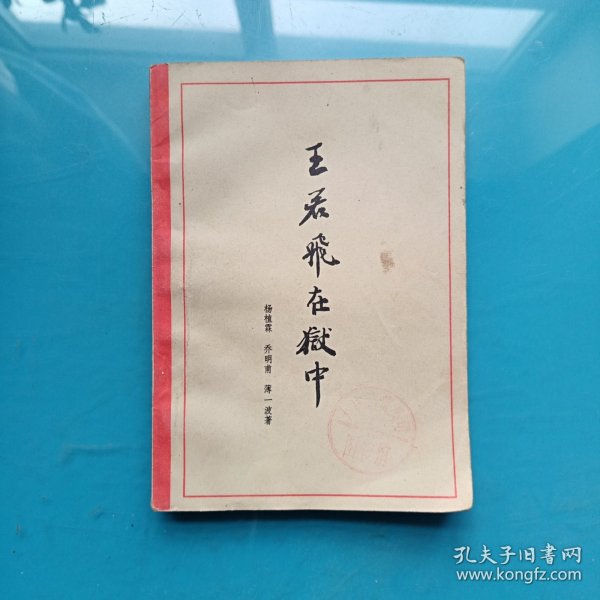 王若飛在獄中
杨植霖 乔明甫 薄一波著
孔夫子旧书网
www.kongfz.com